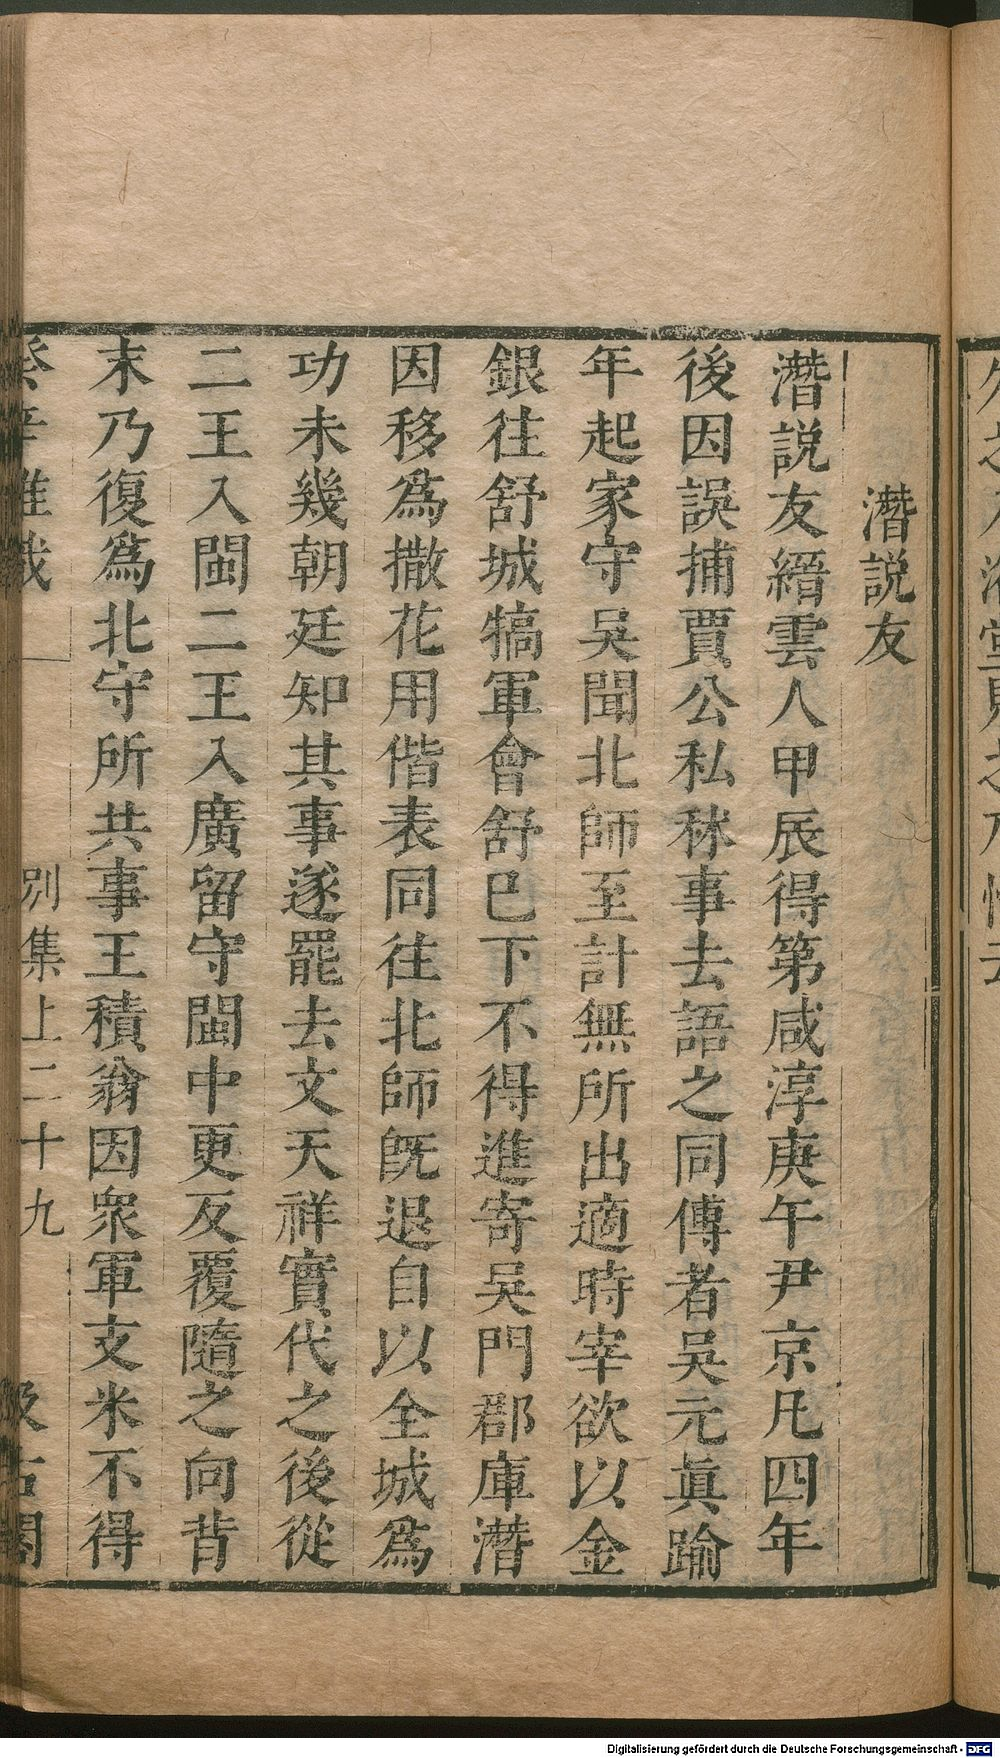 潛説友
潛説友縉雲人甲辰得第咸淳庚午尹京凡四年
後因誤捕賈公私秫事去語之同傅者吳元眞踰
年起家守吳聞北師至計無所出適時宰欲以金
銀往舒城犒軍會舒巳下不得進寄吳門郡庫潛
因移爲撒花用偕表同往北師旣退自以全城爲
功未幾朝廷知其事遂罷去文天祥實代之後從
二王入閩二王入廣留守閩中更反覆隨之向背
末乃復爲北守所共事王積翁因衆軍支米不得
癸辛雜識
別集上二十九
汲古閣
Digitalisierung gefördert durch die Deutsche Forschungsgemeinschaft - DFG